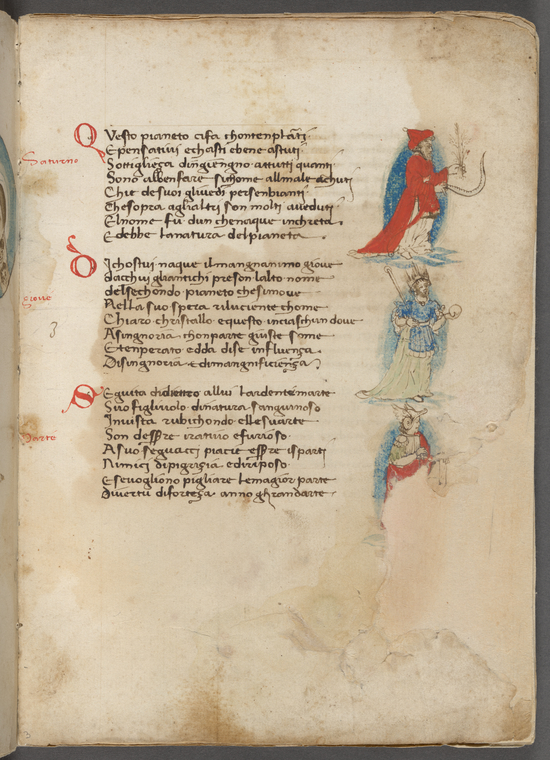 Saturno
Questo pianeto cifa chontenplātj
Epensativi echasti ebene astuti
Sottigliezza dingiengno attutti quanti
Sono albenfare sichome allmale achuti
Chie desuoi
Chesopra aglialtri son molti aveduti
Elnome fu dun chenaque inchreta
Edebbe lanatura delpianeta
giove
Dichostui naque ilmangnanimo giove
dacchui gliantichi preson lalto nome
delsechondo pianeto chesimove
Nella suo spera riluciente chome
Chiaro christallo equesto inciaschun dove
Asingnoria chonparte giuste some
Etenperato edda dise influenza
Disingnoria edimangnificienza
3
Marte
Seguita didietro allui lardente marte
Suo figliuolo dinatura sanguinoso
Invista rubichondo ellesuarte
Son dessre irativo efurioso
Asuo seguacci piacie essre isparti
Nimici dipigrizia ediriposo
Esevogliono pigliare lemagior parte
Divertu difortezza anno ghrandarte